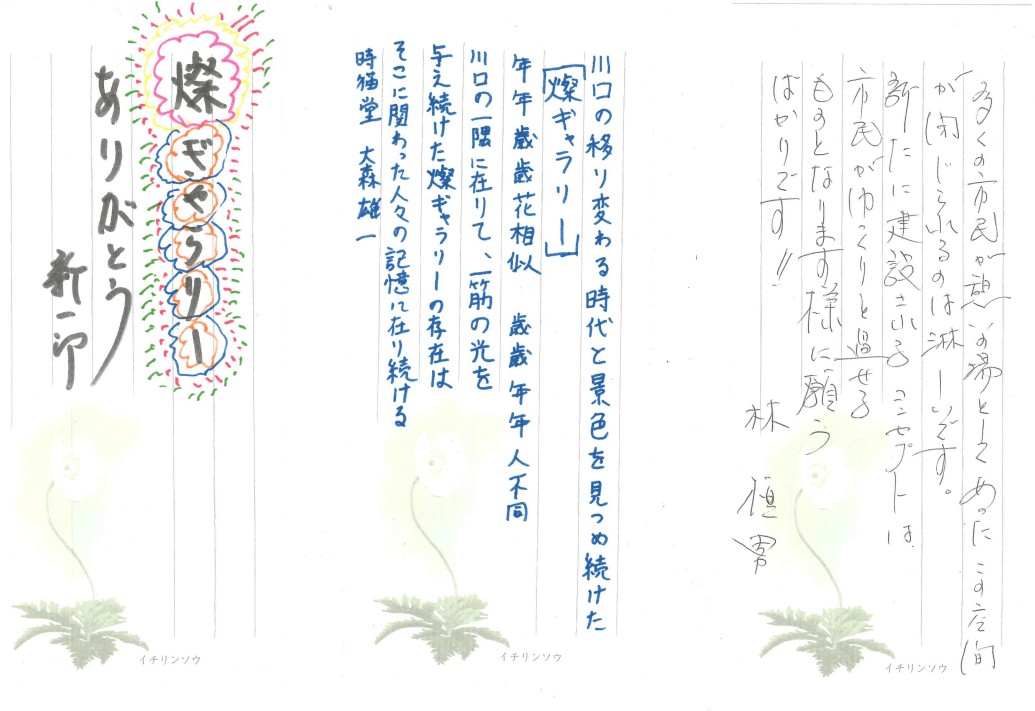 多くの市民が憩いの場としてあったこの空間
が閉じられるのは淋しいです。
新たに建設されるコンセプトは
市民がゆっくりと過せる
ものとなります様に願う
ばかりです!!
林
イチリンソウ
川口の移り変わる時代と景色を見つめ続けた
「燦ギャラリー」
年年歳歳花相似 歳歳年年人不同
川口の一隅に在りて、一筋の光を
与え続けた燦ギャラリーの存在は
そこに関わった人々の記憶に在り続ける
時猫堂 大森雄一
イチリンソウ
燦ぎゃらりー
ありがとう
新一郎
イチリンソウ